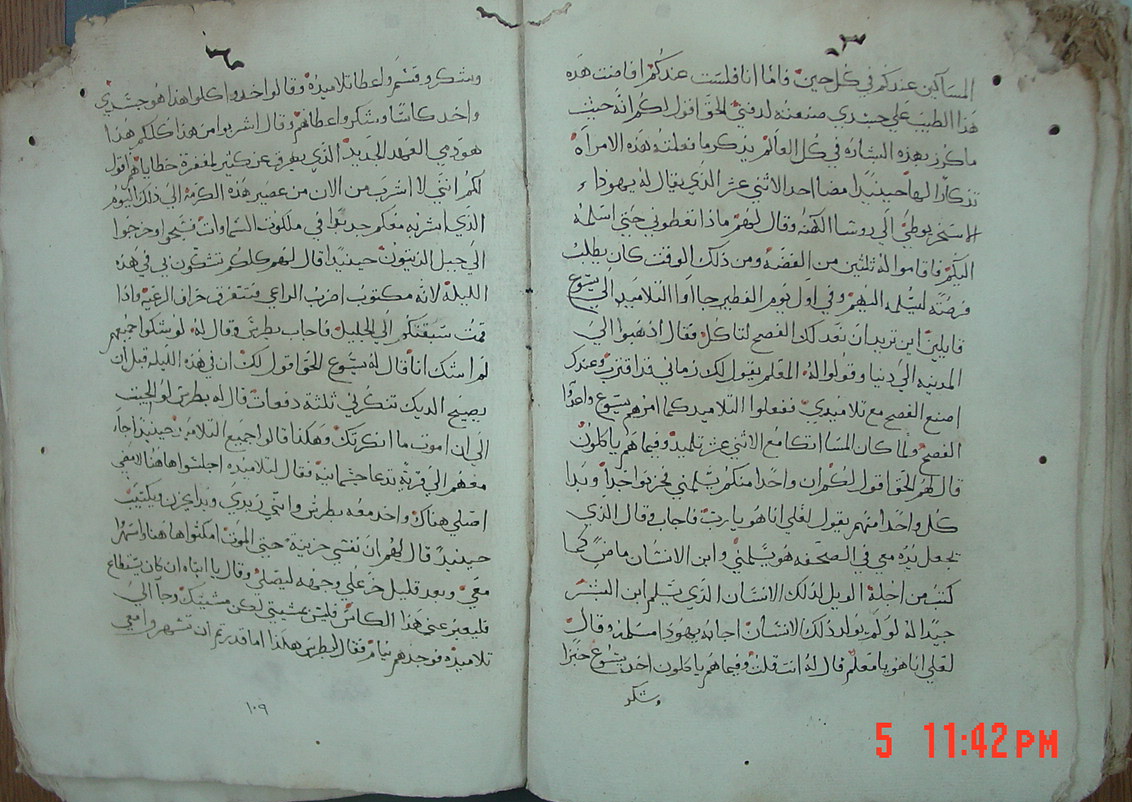 المساكين عندكم في كل حين فاما انا فلست عندكم افاضت هده
هدا الطيب على جسدي صنعته لدفني الحق اقول لكم انه حيث
ما كرز بهده البشاره في كل العالم يذكر ما فعلته هده الامراه
تذكارًا لها حينيدا مضا احد الاثني عشر الذي يقال له يهودا
الاسخريوطي الي روسا الكهنه وقال لهم ماذا تعطوني حتي اسلمه
اليكم فاقاموا له ثلثين من الفضه ومن ذلك الوقت كان يطلب
فرصه ليسلمه اليهم وفي اول يوم الفطير جاوا التلاميد الي يسوع
قايلين اين تريد ان نعد لك الفصح لتاكل فقال اذهبوا الي
المدينه الي دنيا وقولوا له المعلم يقول لك زماني قد اقترب وعندك
اصنع الفصح مع تلاميدي ففعلوا التلاميد كما امرهم يسوع واعدوا
الفصح ولما كان المسا اتكا مع الاثني عشر تلميد وفيما هم ياكلون
قال لهم الحق اقول لكم ان واحدا منكم يسلمني فحزنوا جدا وبدا
كل واحدا منهم يقول لعلي انا هو يارب فاجاب وقال الذي
يجعل يده معي في الصحفه هو يسلمني وابن الانسان ماض كما
كتب من اجله الويل لذلك الانسان الذي يسلم ابن البشر
جيدا له لو لم يولد ذلك الانسان اجابه يهودا مسلمه وقال
لعلي انا هو يا معلم قال له انت قلت وفيما هم ياكلون اخد يسوع خبزا
وشكر
وشكر وقسم واعطا تلاميده وقال خدوا كلوا هدا هو جسدي
واخد كاسا وشكر واعطاهم وقال اشربوا من هدا كلكم هدا
هو دمي العهد الجديد الذي يهرق عن كثير لمغفرة خطاياهم اقول
لكم انني لا اشرب من الان من عصير هده الكرمه الي ذلك اليوم
الذي اشربه معكم جديدا في ملكوت السماوات فسبحوا وخرجوا
الي جبل الزيتون حينيدا قال لهم كلكم تشكون بي في هده
الليله لانه مكتوب اضرب الراعي فتتفرق خراف الرعيه واذا
قمت سبقتكم الي الجليل فاجاب بطرس وقال له لو شكوا جميعهم
لم اشك انا قال له يسوع الحق اقول لك ان في هده الليله قبل ان
يصيح الديك تنكرني ثلثه دفعات قال له بطرس لو الجيت
الي ان اموت ما انكرتك وهكدا قالوا جميع التلاميد حينيدا جا
معهم الي قريه تدعا جتسمانيه فقال لتلاميده اجلسوا هاهنا لامضي
اصلي هناك واخد معه بطرس وابني زبدي وبدا يحزن ويكتيب
حينيد قال لهم ان نفسي حزينه حتي الموت امكتوا هاهنا واسهروا
معي وبعد قليل خر علي وجهه ليصلي وقال يا ابتاه ان كان يستطاع
فليعبر عني هدا الكاس فليس بمشيتي لكن مشيتك وجا الي
تلاميده فوجدهم نيام فقال لبطرس هكدا اما قدرتم ان تسهروا معي
١٠٩
5 11:42 PM